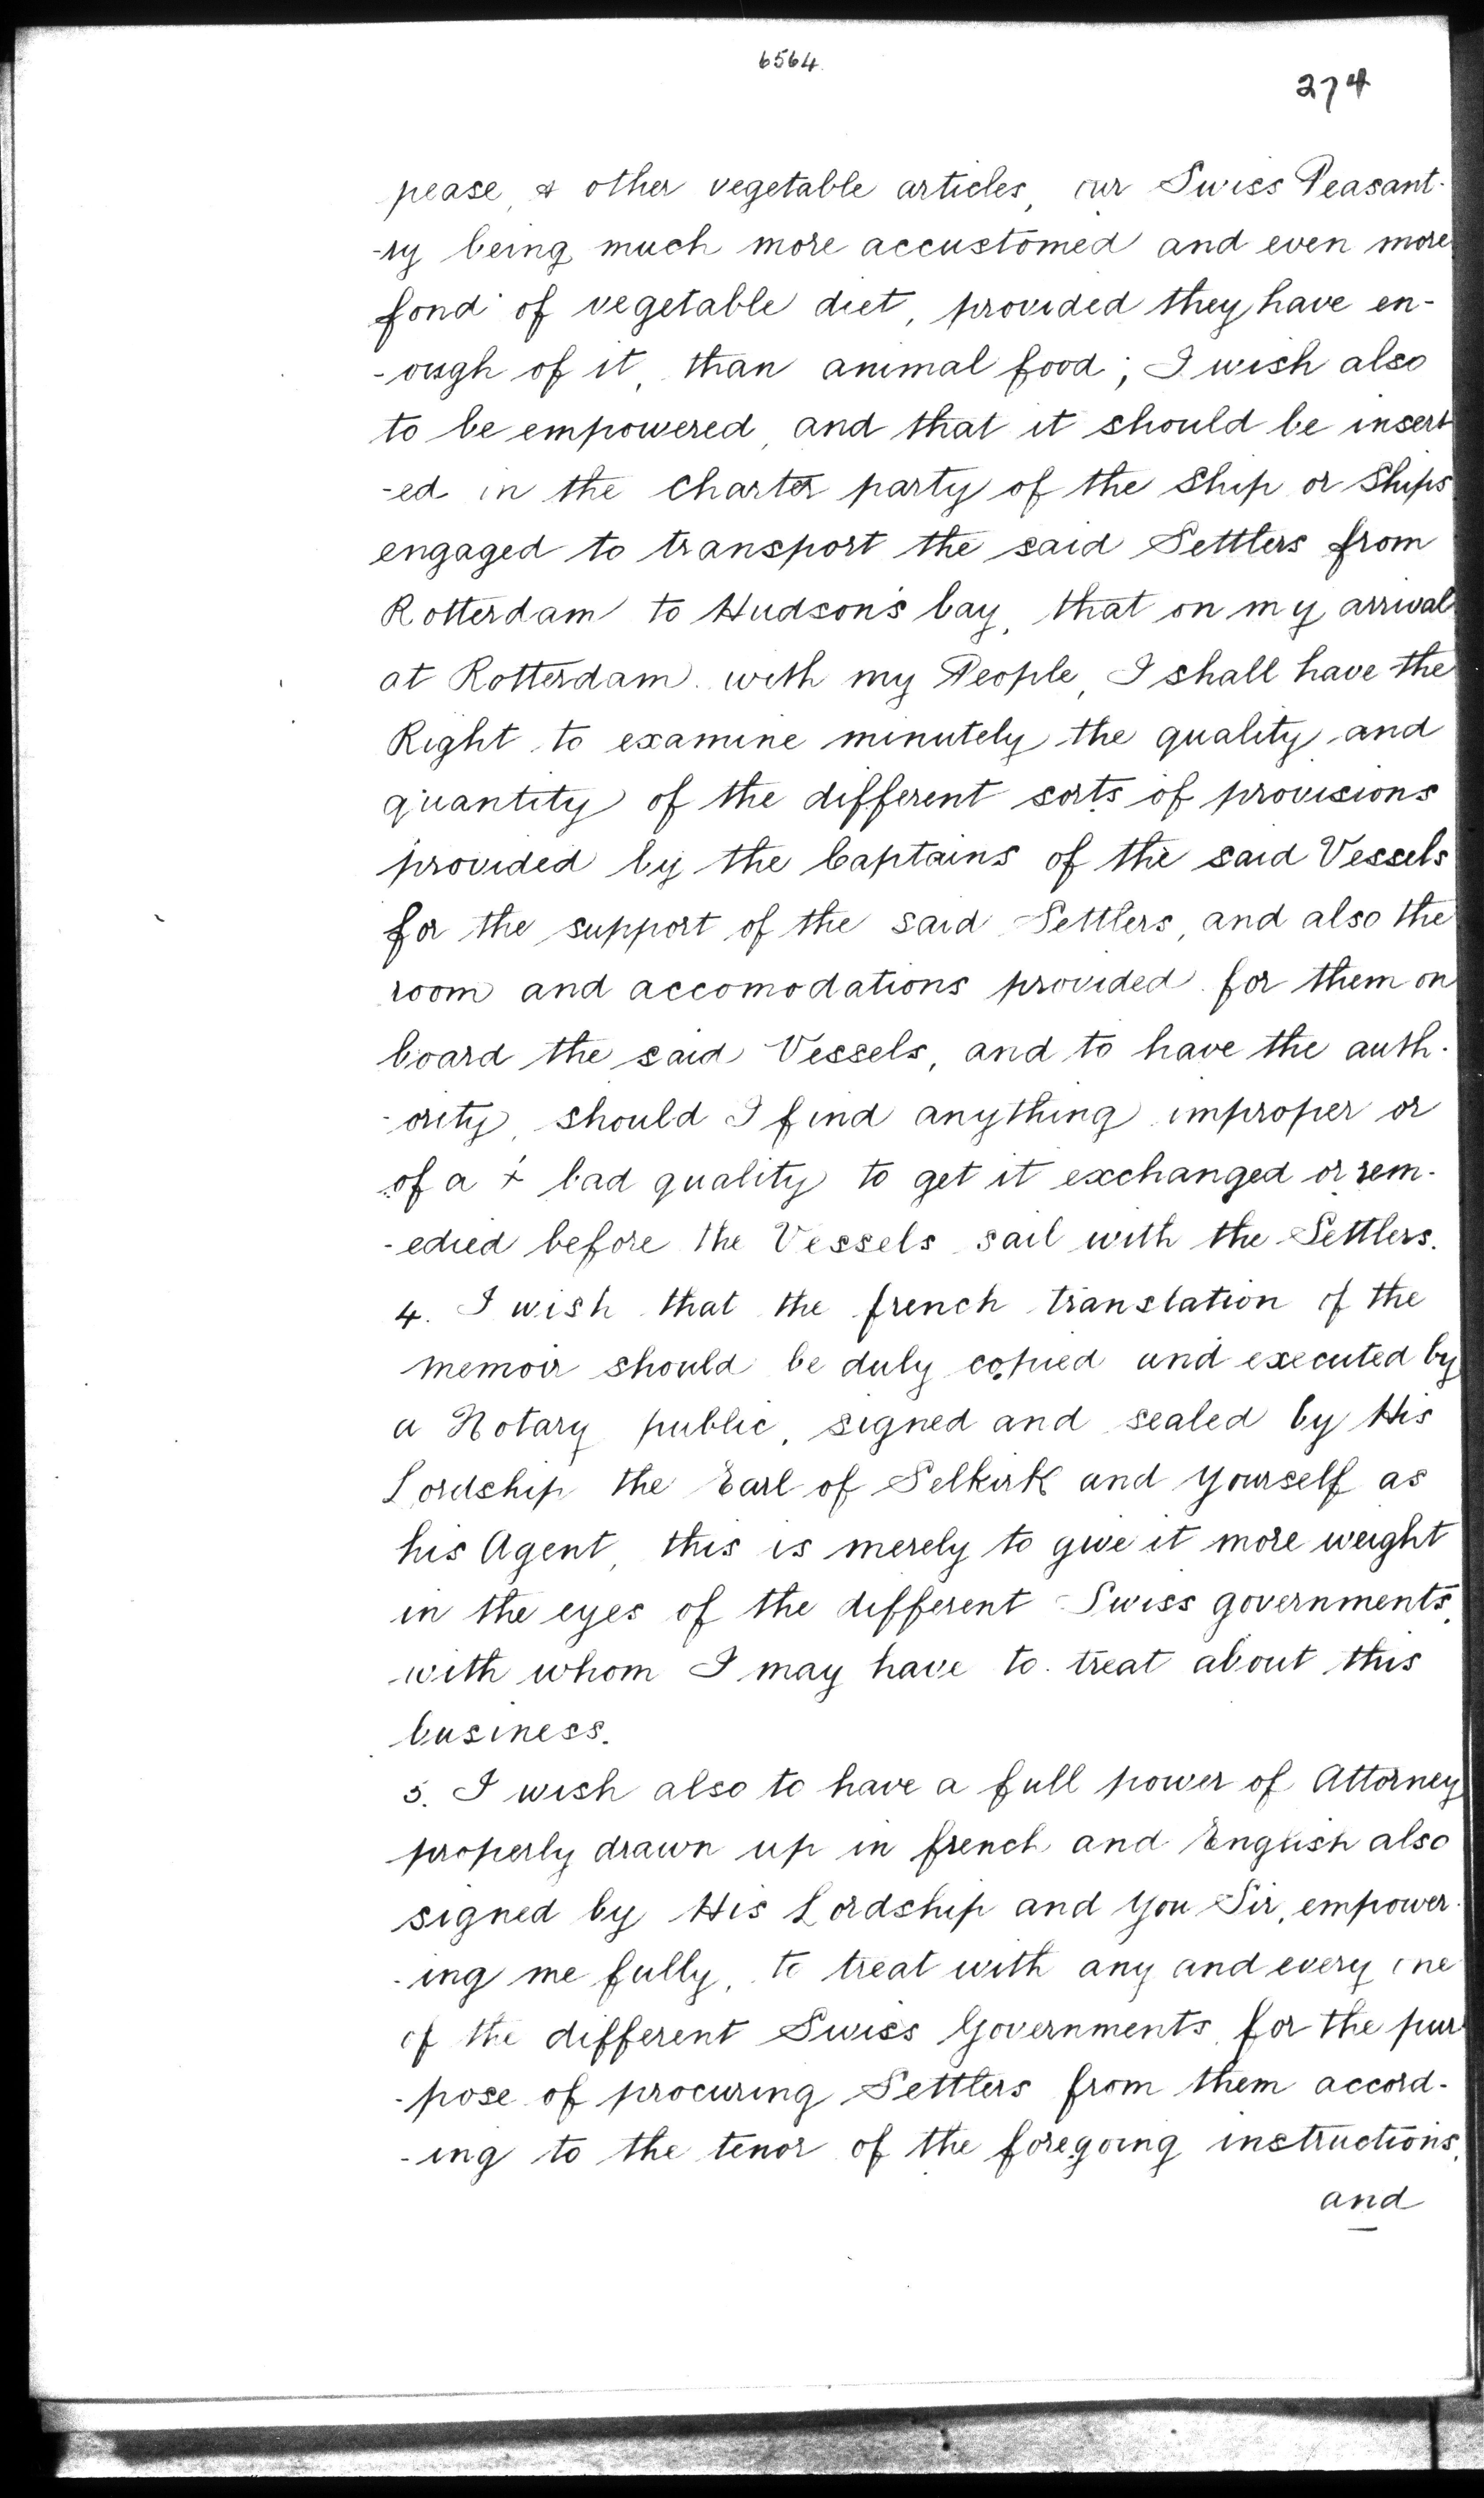 6564
274
pease, & other vegetable articles, our Swiss Peasant-
-ry being much more accustomed and even more
fond of vegetable diet, provided they have en-
-ough of it, than animal food; I wish also
to be empowered, and that it should be insert
-ed in the charter party of the Ship or Ships
engaged to transport the said Settlers from
Rotterdam to Hudson's bay, that on my arrival
at Rotterdam with my People, I shall have the
Right to examine minutely the quality and
quantity of the different sorts of provisions
provided by the Captains of the said Vessels
for the support of the said Settlers, and also the
room and accomodations provided for them on
board the said Vessels, and to have the auth-
-ority, should I find anything improper or
of a x bad quality to get it exchanged or rem-
-edied before the Vessels sail with the Settlers.
4. I wish that the french translation of the
memoir should be duly copied and executed by
a Notary public, signed and sealed by His
Lordship the Earl of Selkirk and yourself as
his Agent, this is merely to give it more weight
in the eyes of the different Swiss governments,
with whom I may have to treat about this
business.
5. I wish also to have a full power of Attorney
properly drawn up in french and English also
signed by His Lordship and you Sir, empower-
-ing me fully, to treat with any and every one
of the different Swiss Governments, for the pur
-pose of procuring Settlers from them accord-
-ing to the tenor of the foregoing instructions,
and